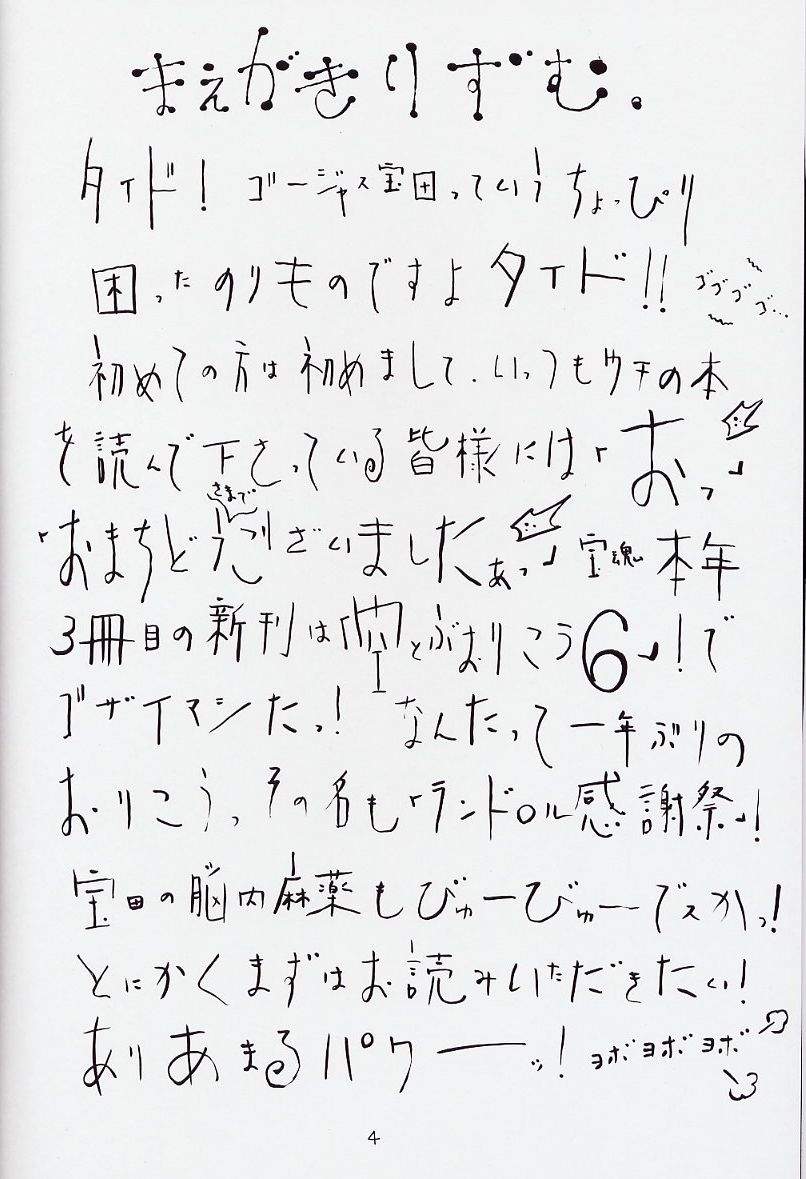 まえがきりずむ。
タイド！ゴージャス宝田っていうちょっぴり
困ったのりものですよタイド!! ゴゴゴゴ…
初めての方は初めまして、いっつもウチの本
を読んで下さっている皆様には「おっ」
さまで
「おまちどうござざいましたあっ」宝魂 本年
3冊目の新刊は「とぶおりこう6」！で
ゴザイマシたっ！ なんたって一年ぶりの
おりこうっ その名も「ランドロル感謝祭」！
宝田の脳内麻薬もびゅーびゅーでスかっ！
とにかくまずはお読みいただきたい！
ありあまるパワーーッ！ ヨボヨボヨボ
4